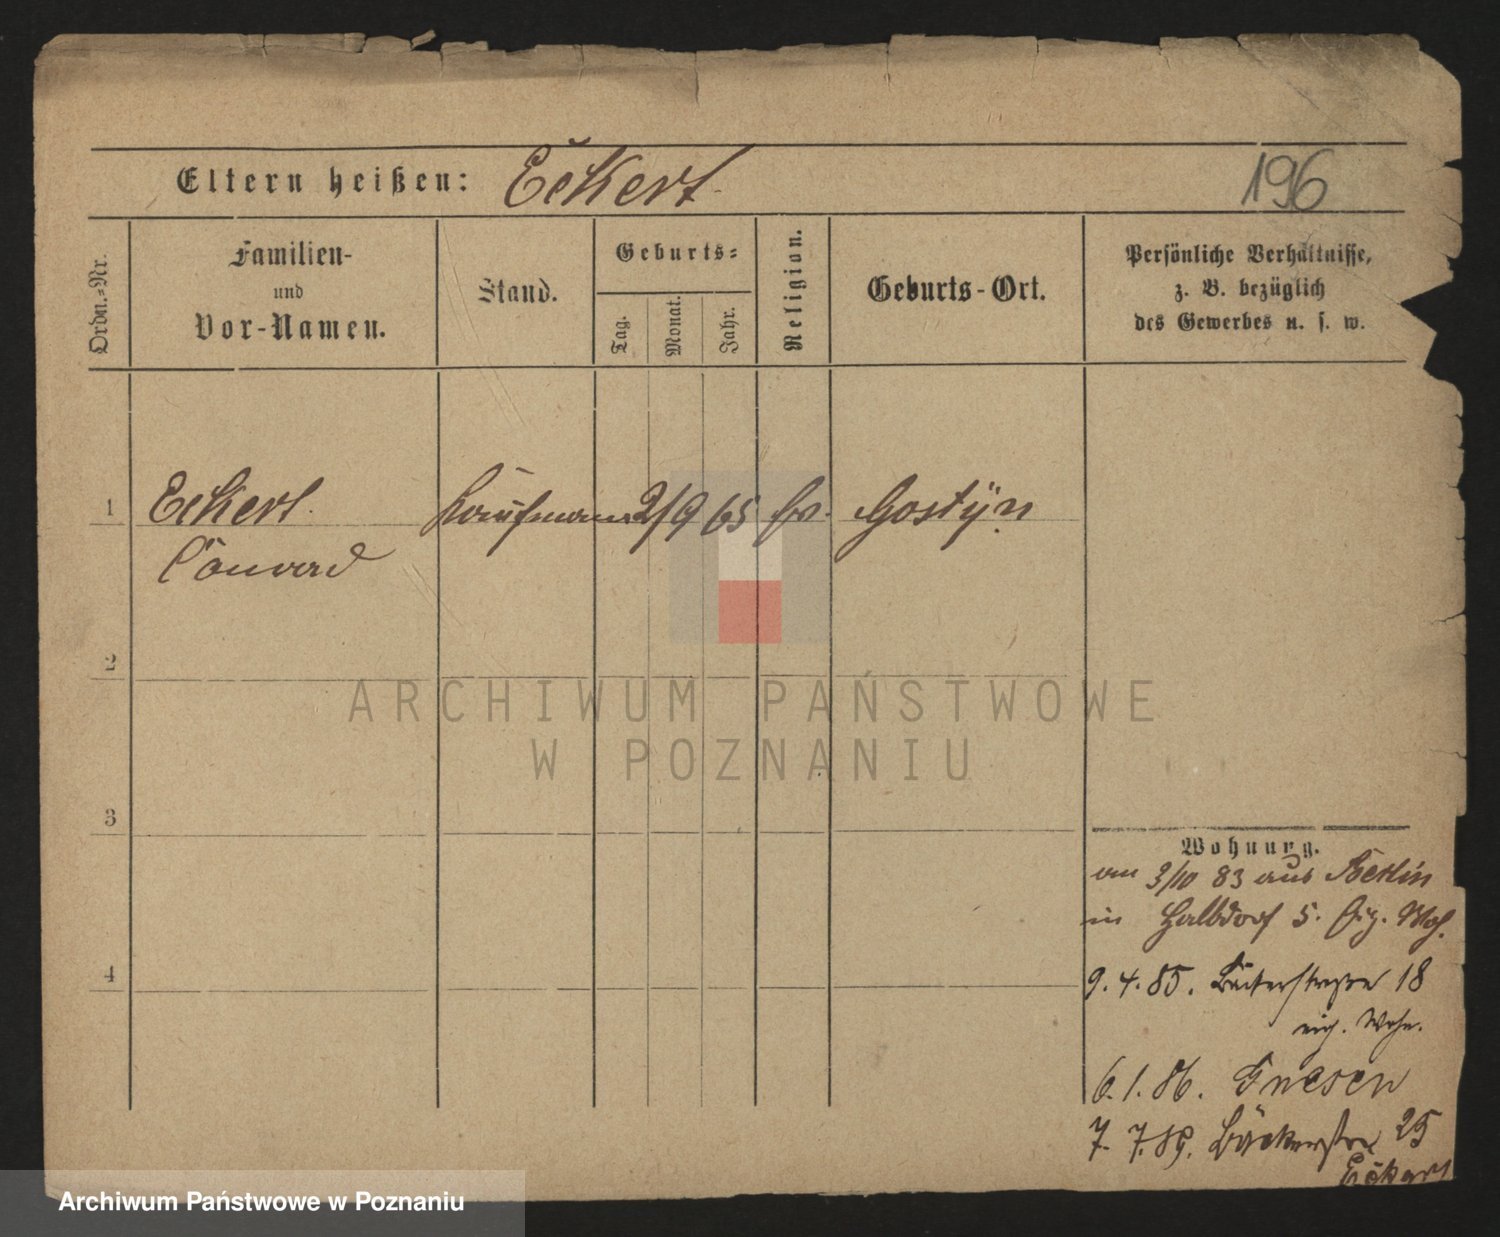 Eltern heißen: Eckert 196
Ordn.=Nr.
Familien-
und
Vor-Namen.
Stand.
Geburts=
Tag.
Monat.
Jahr.
Religion.
Geburts-Ort.
Persönliche Verhältnisse,
z. B. bezüglich
des Gewerbes u. s. w.
1 Eckert Kaufmann 2/9 65 Gostÿn
Conrad
2
3
4
Wohnung.
am 3/10 83 aus Berlin
in Halbdorf 5.
9. 4. 85. 18
eig. Wohn.
6. 1. 86. Gnesen
7. 7. 89. Bäckerstra 25
Eckert
ARCHIWUM PAŃSTWOWE
W POZNANIU
Archiwum Państwowe w Poznaniu